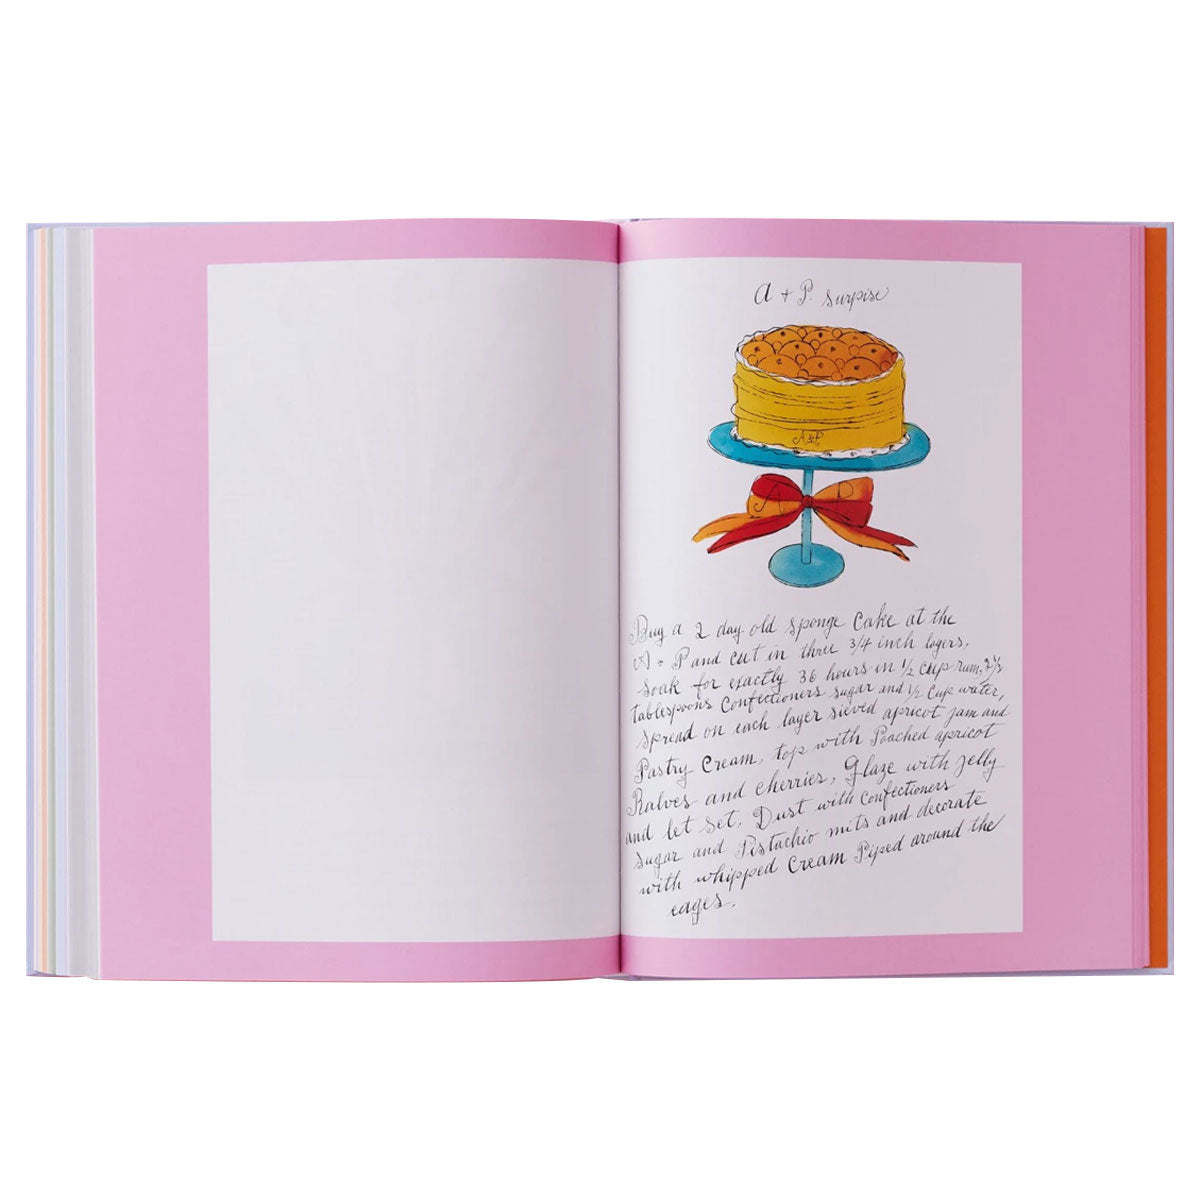 A + P. Surpise
A & P
A P
Buy a 2 day old sponge Cake at the
A + P and cut in three 3/4 inch layers,
soak for exactly 36 hours in 1/2 cup rum, 2 1/2
tablespoons Confectioners sugar and 1/2 Cup water,
spread on each layer sieved apricot jam and
Pastry Cream, top with Poached apricot
Halves and cherries, Glaze with jelly
and let set. Dust with Confectioners
sugar and Pistachio mits and decorate
with whipped Cream Piped around the
edges.